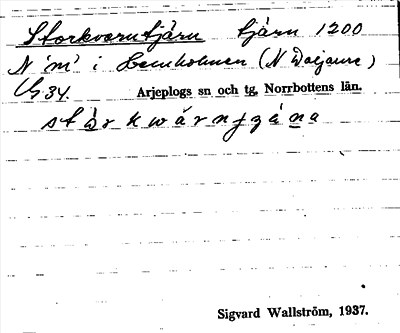 Storkvarntjärn tjärn 1200
N 'm' i Hemholmen (N Daijaure)
Us 34. Arjeplogs sn och tg, Norrbottens län.
Sigvard Wallström, 1937.